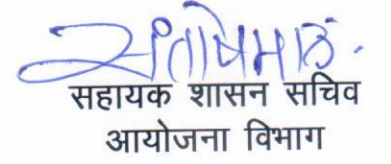 सहायक शासन सचिव
आयोजना विभाग